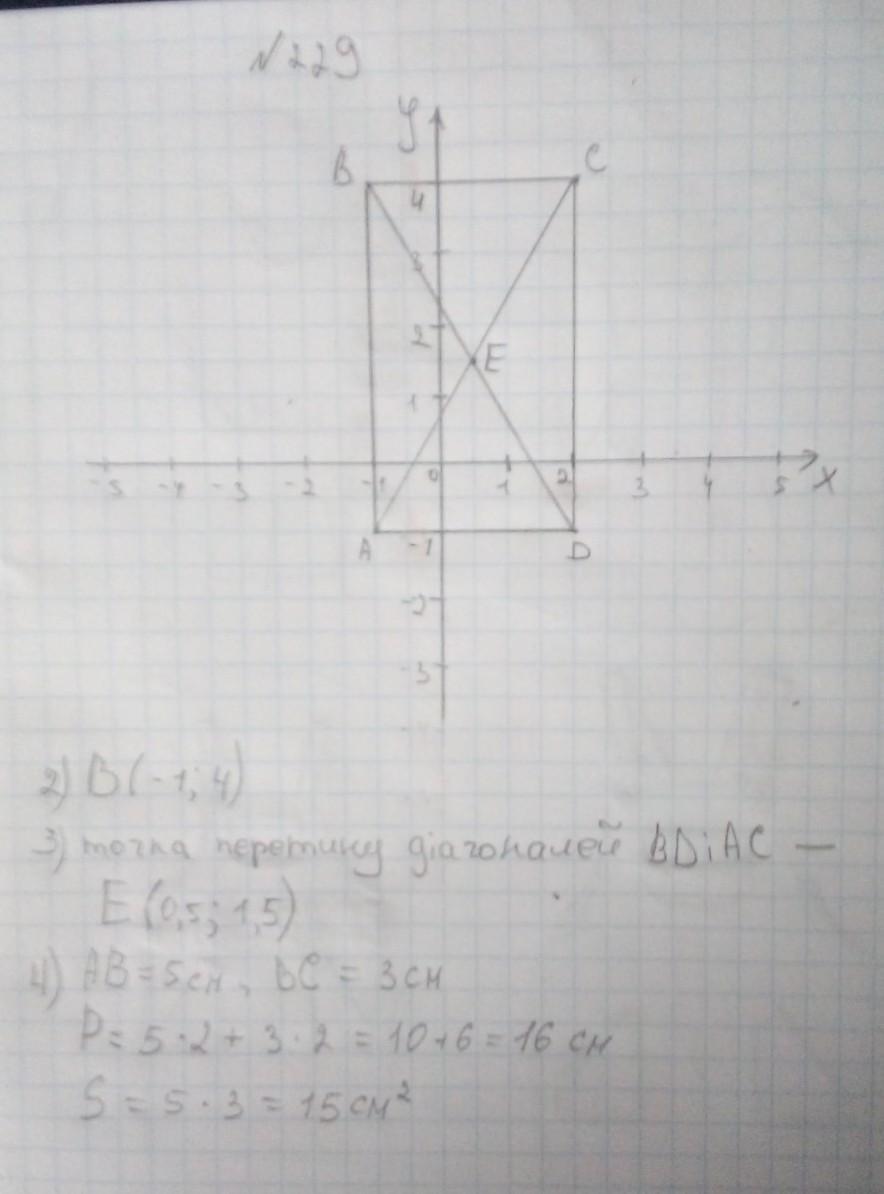 №229
y
B
C
4
3
2
E
1
-5 -4 -3 -2 -1 0 1 2 3 4 5 x
A -1 D
-2
-3
2) B(-1; 4)
3) точка перетину діагоналей BD і AC —
E(0,5; 1,5)
4) AB = 5 см, BC = 3 см
P = 5 · 2 + 3 · 2 = 10 + 6 = 16 см
S = 5 · 3 = 15 см²